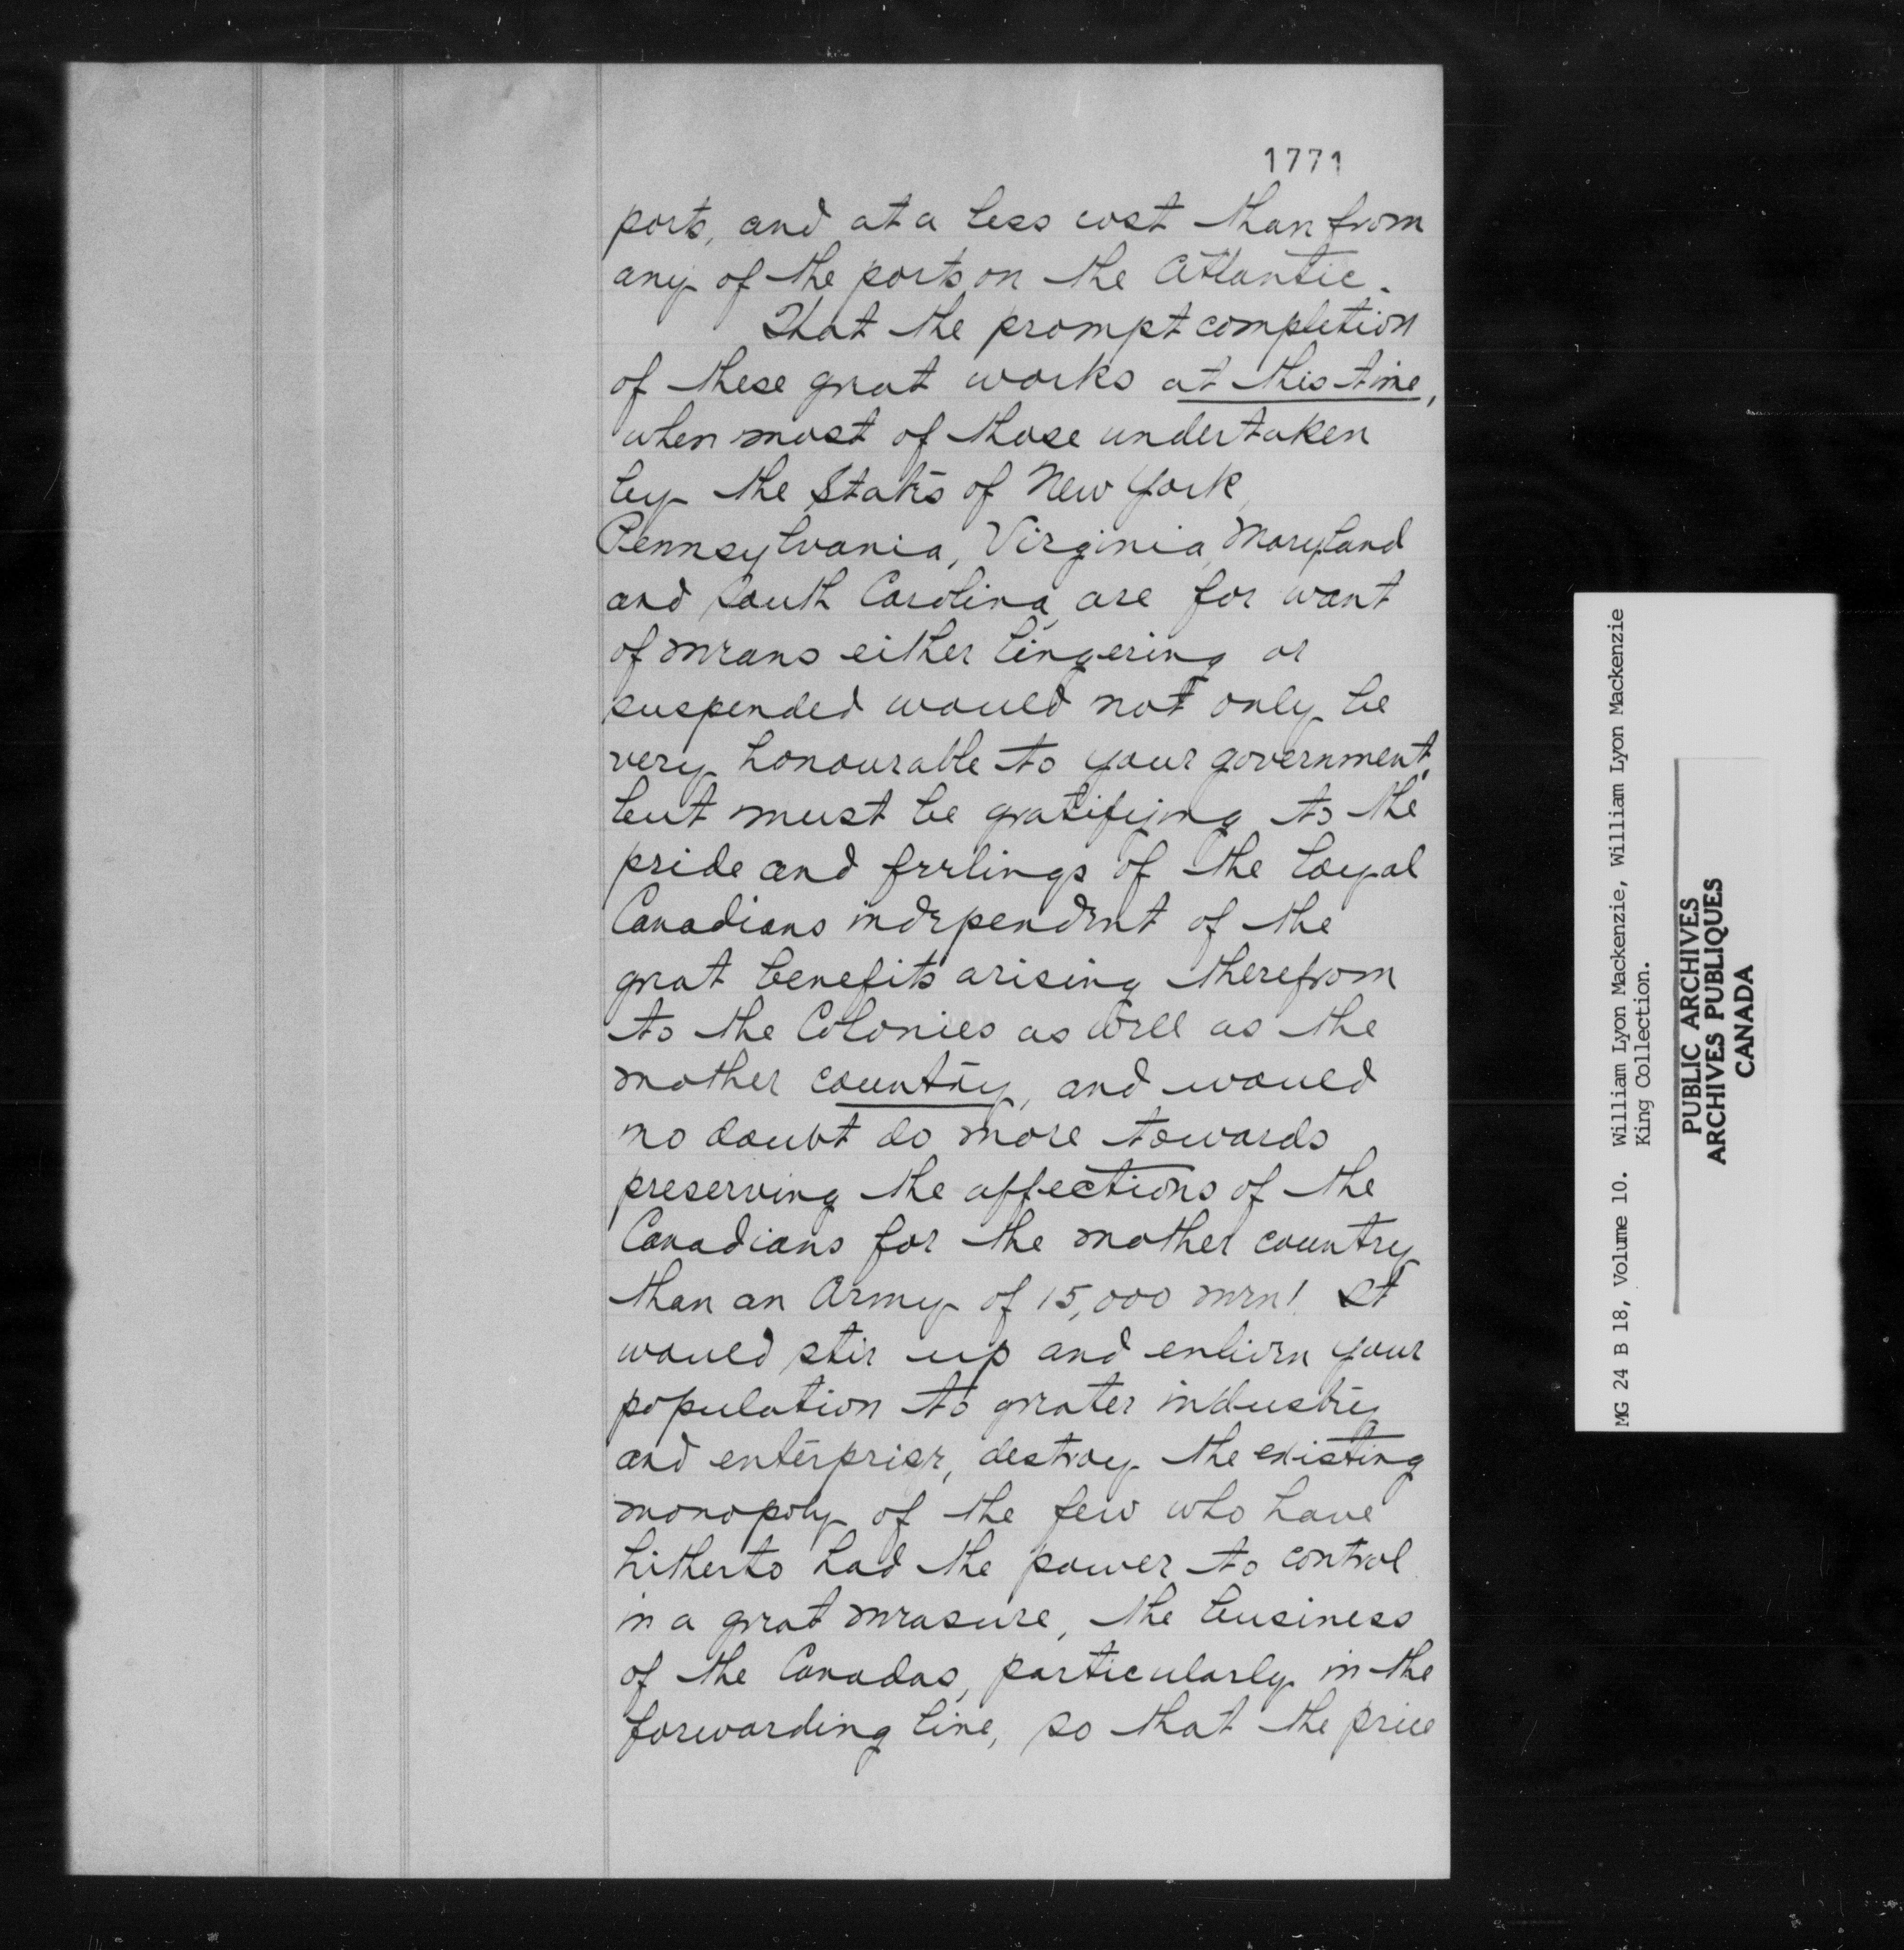 1771
ports, and at a less cost than from
any of the ports on the Atlantic.
That the prompt completion
of these great works at this time,
when most of those undertaken
by the States of New York,
Pennsylvania, Virginia, Maryland
and South Carolina, are for want
of means either lingering or
suspended would not only be
very honourable to your government,
but must be gratifying to the
pride and feelings of the loyal
Canadians independent of the
great benefits arising therefrom
to the Colonies as well as the
mother country, and would
no doubt do more towards
preserving the affections of the
Canadians for the mother country
than an Army of 15,000 men! It
would stir up and enliven your
population to greater industry
and enterprise, destroy the existing
monopoly of the few who have
hitherto had the power to control
in a great measure, the business
of the Canadas, particularly in the
forwarding line, so that the price
MG 24 B 18, Volume 10. William Lyon Mackenzie, William Lyon Mackenzie
King Collection.
PUBLIC ARCHIVES
ARCHIVES PUBLIQUES
CANADA